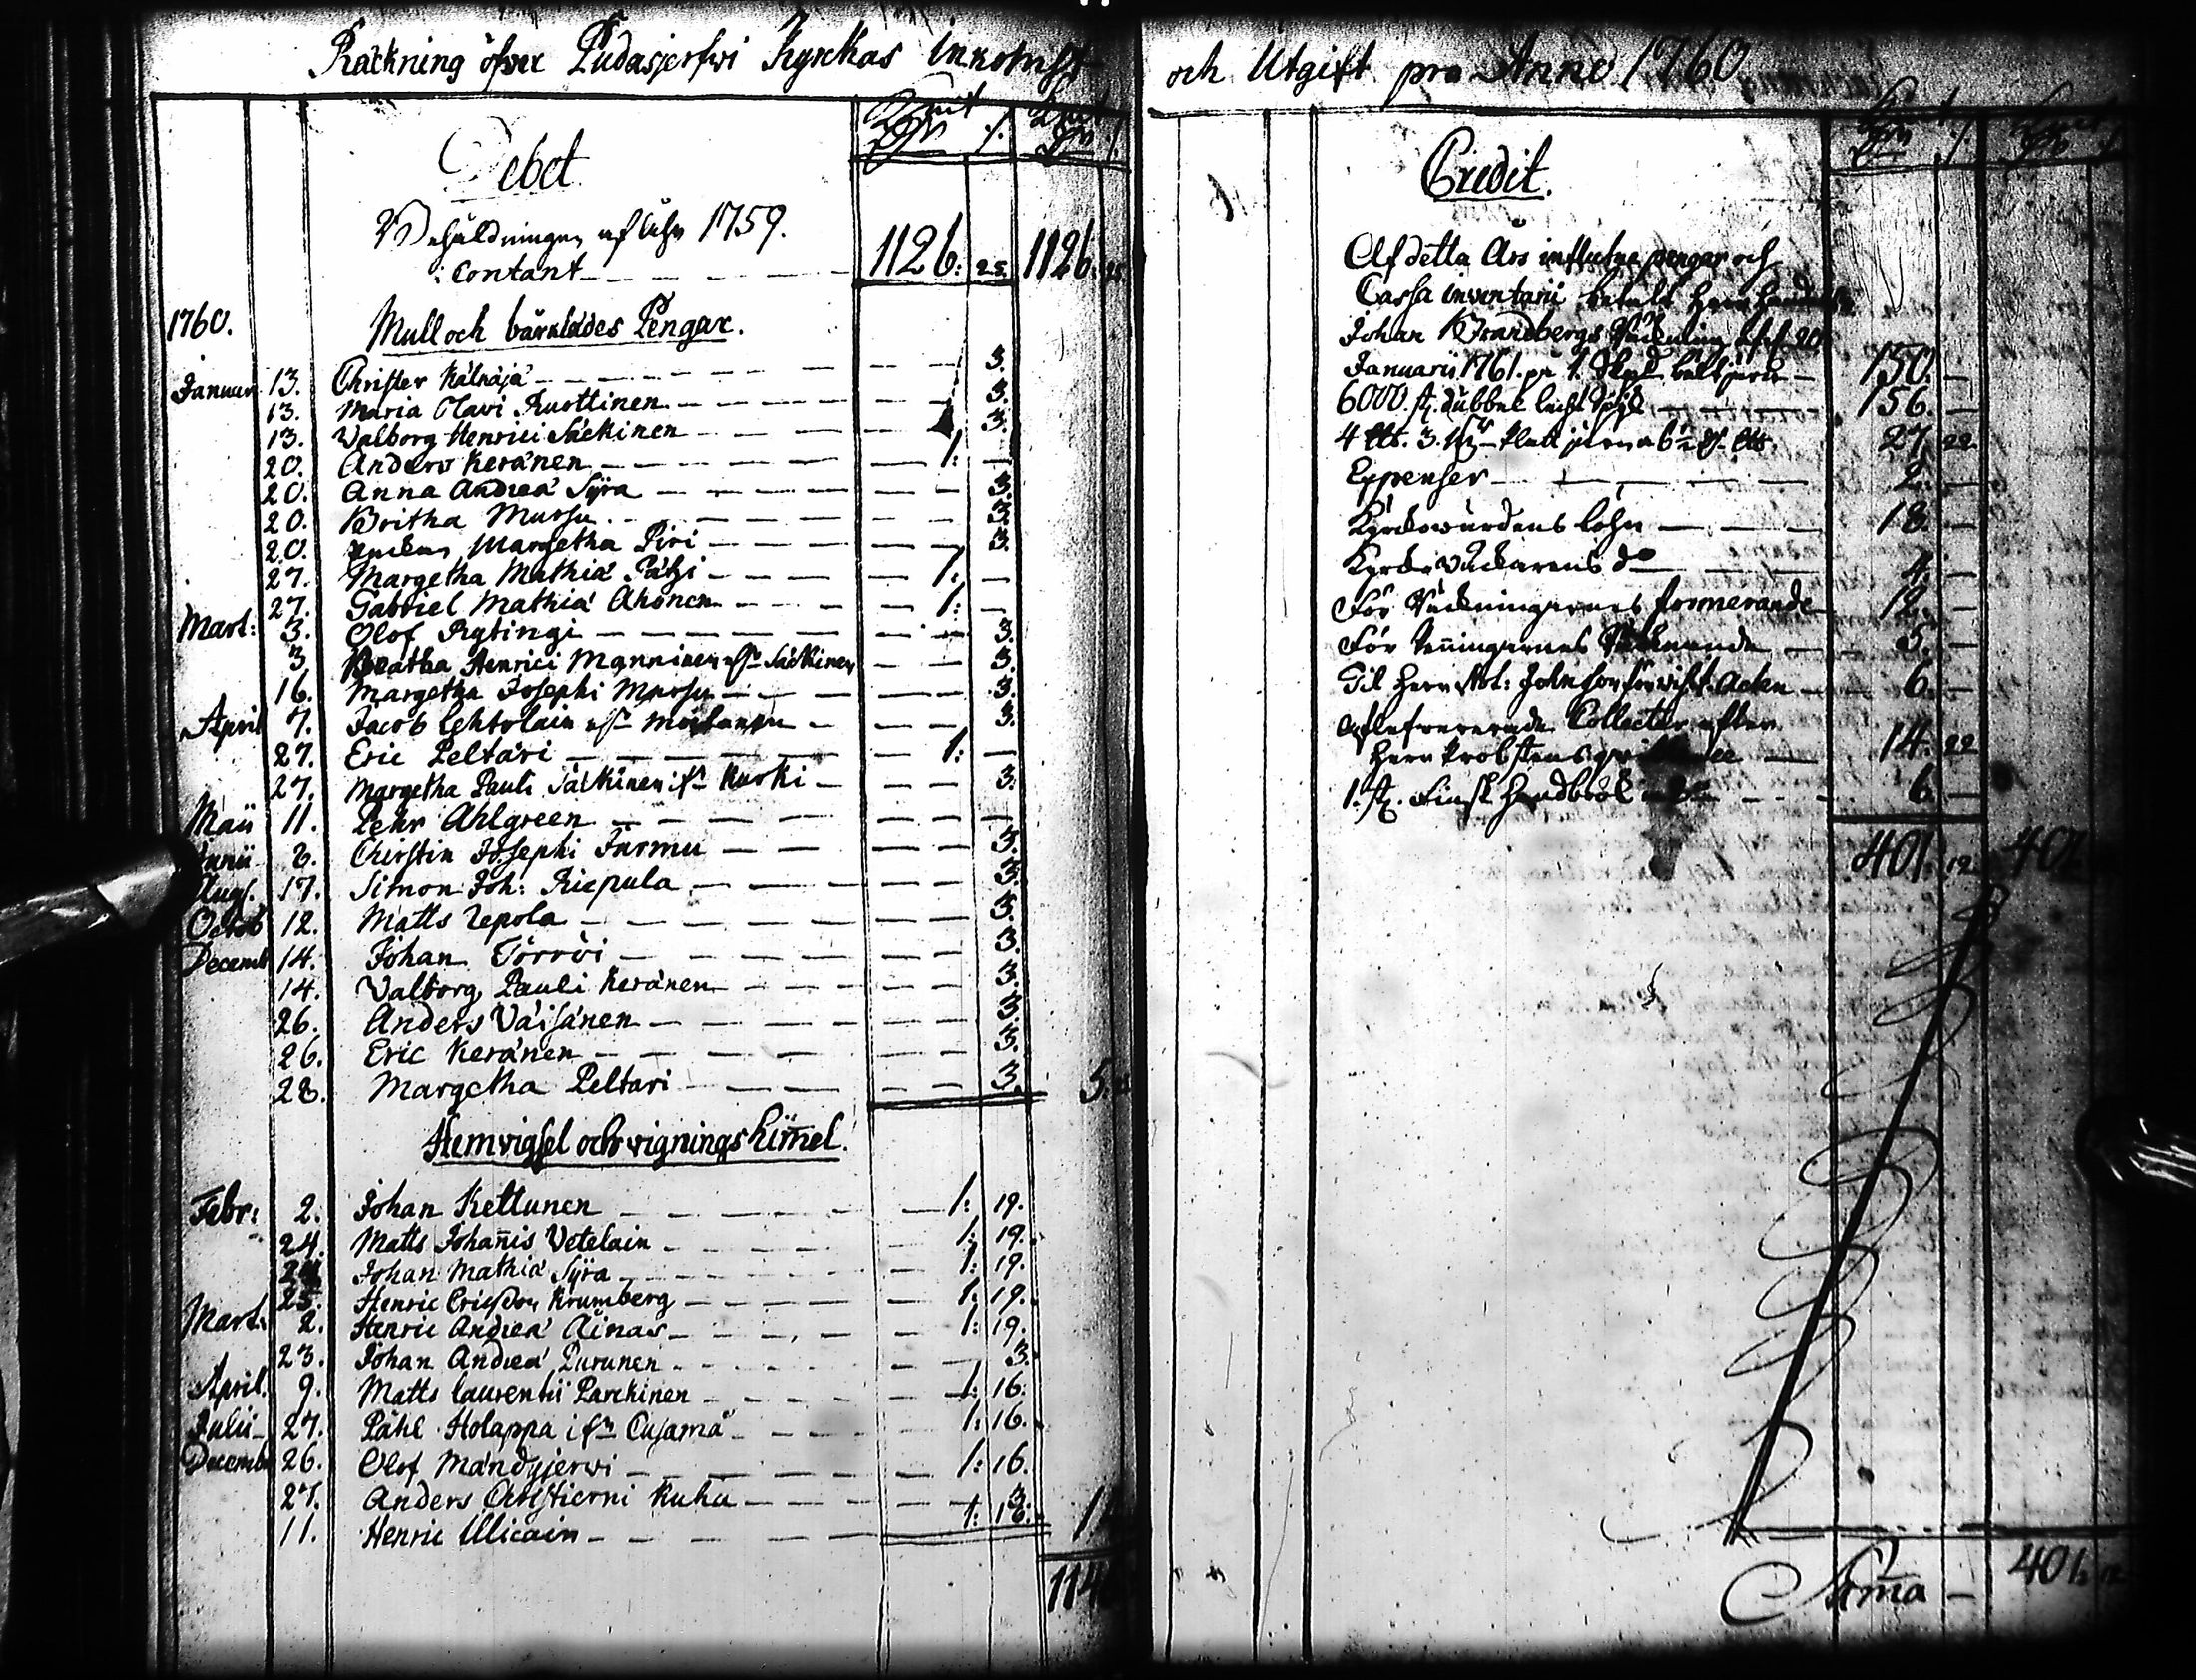 Räckning öfwer Pudasjerfwi Kyrckas Inkomst
Debet
Behåldningen af åhr 1759.
: Contant 1126: 25. 1126: 25
1760. Mull och bårklädes Pengar.
Januar 13. Christer Kälkäjä 3.
13. Maria Olavi Ruottinen 3.
13. Valborg Henrici Säckinen 3.
20. Anders Keränen 1: —
20. Anna Andreä Syra 3.
20. Britha Mursu 3.
20. Margetha Piri 3.
27. Margetha Mathiä Pätzi 1: —
27. Gabriel Mathiä Ahonen 1: —
Mart: 3. Olof Rytingi 3.
3. Beatha Henrici Manninen Säckinen 3.
16. Margetha Josephi Mursu 3.
April 7. Jacob Lehtolain 3.
27. Eric Peltari 1: —
27. Margetha Pauli Säckinen if:n Kurki 3.
Maii 11. Pehr Ahlgreen —
Junii 8. Chirstin Josephi Jurmu 3.
Aug. 17. Simon Joh: Riepula 3.
Octob 12. Matts Repola 3.
Decemb 14. Johan Törröi 3.
14. Valborg Pauli Keränen 3.
26. Anders Väisänen 3.
26. Eric Keränen 3.
28. Margetha Peltari 3. 5
Hemvigsel och vignings himel.
Febr: 2. Johan Kettunen 1: 19.
24. Matts Johañis Vetelain 1: 19.
24 Johan Mathiä Syra 1: 19.
25. Henric Ericsson Krumberg 1: 19.
Mart: 2. Henric Andreä Äinas 1: 19.
23. Johan Andreä Purunen 3.
April. 9. Matts Laurentii Parckinen 1: 16.
Julii 27. Påhl Holappa if:n Cusamå 1: 16.
Decemb 26. Olof Mändyjerwi 1: 16.
27. Anders Christierni Kuha 3.
11. Henric Illicain 1: 16.
och Utgift pro Anno 1760
Credit.
Af detta Års influtne pengar och
Cassa inventarii betalt Herr Handel
Johan Brandbergs Räckning af d. 20
Januarii 1761. på 1. 150. —
6000. st. dubbel 156. —
4 27. 22.
Expenser 2. —
Kyrckowärdens löhn 18. —
Kyrckowäckarens d:o 4. —
För Räckningarnes formerande 12. —
För Penningarnes Räcknande 5. —
Til Herr Not: Johnson 6. —
Collecter efter
Herr Probstens 14. 22
1. st. Finsk Handbok 6. —
401. 12. 401
Suma — 401: 12